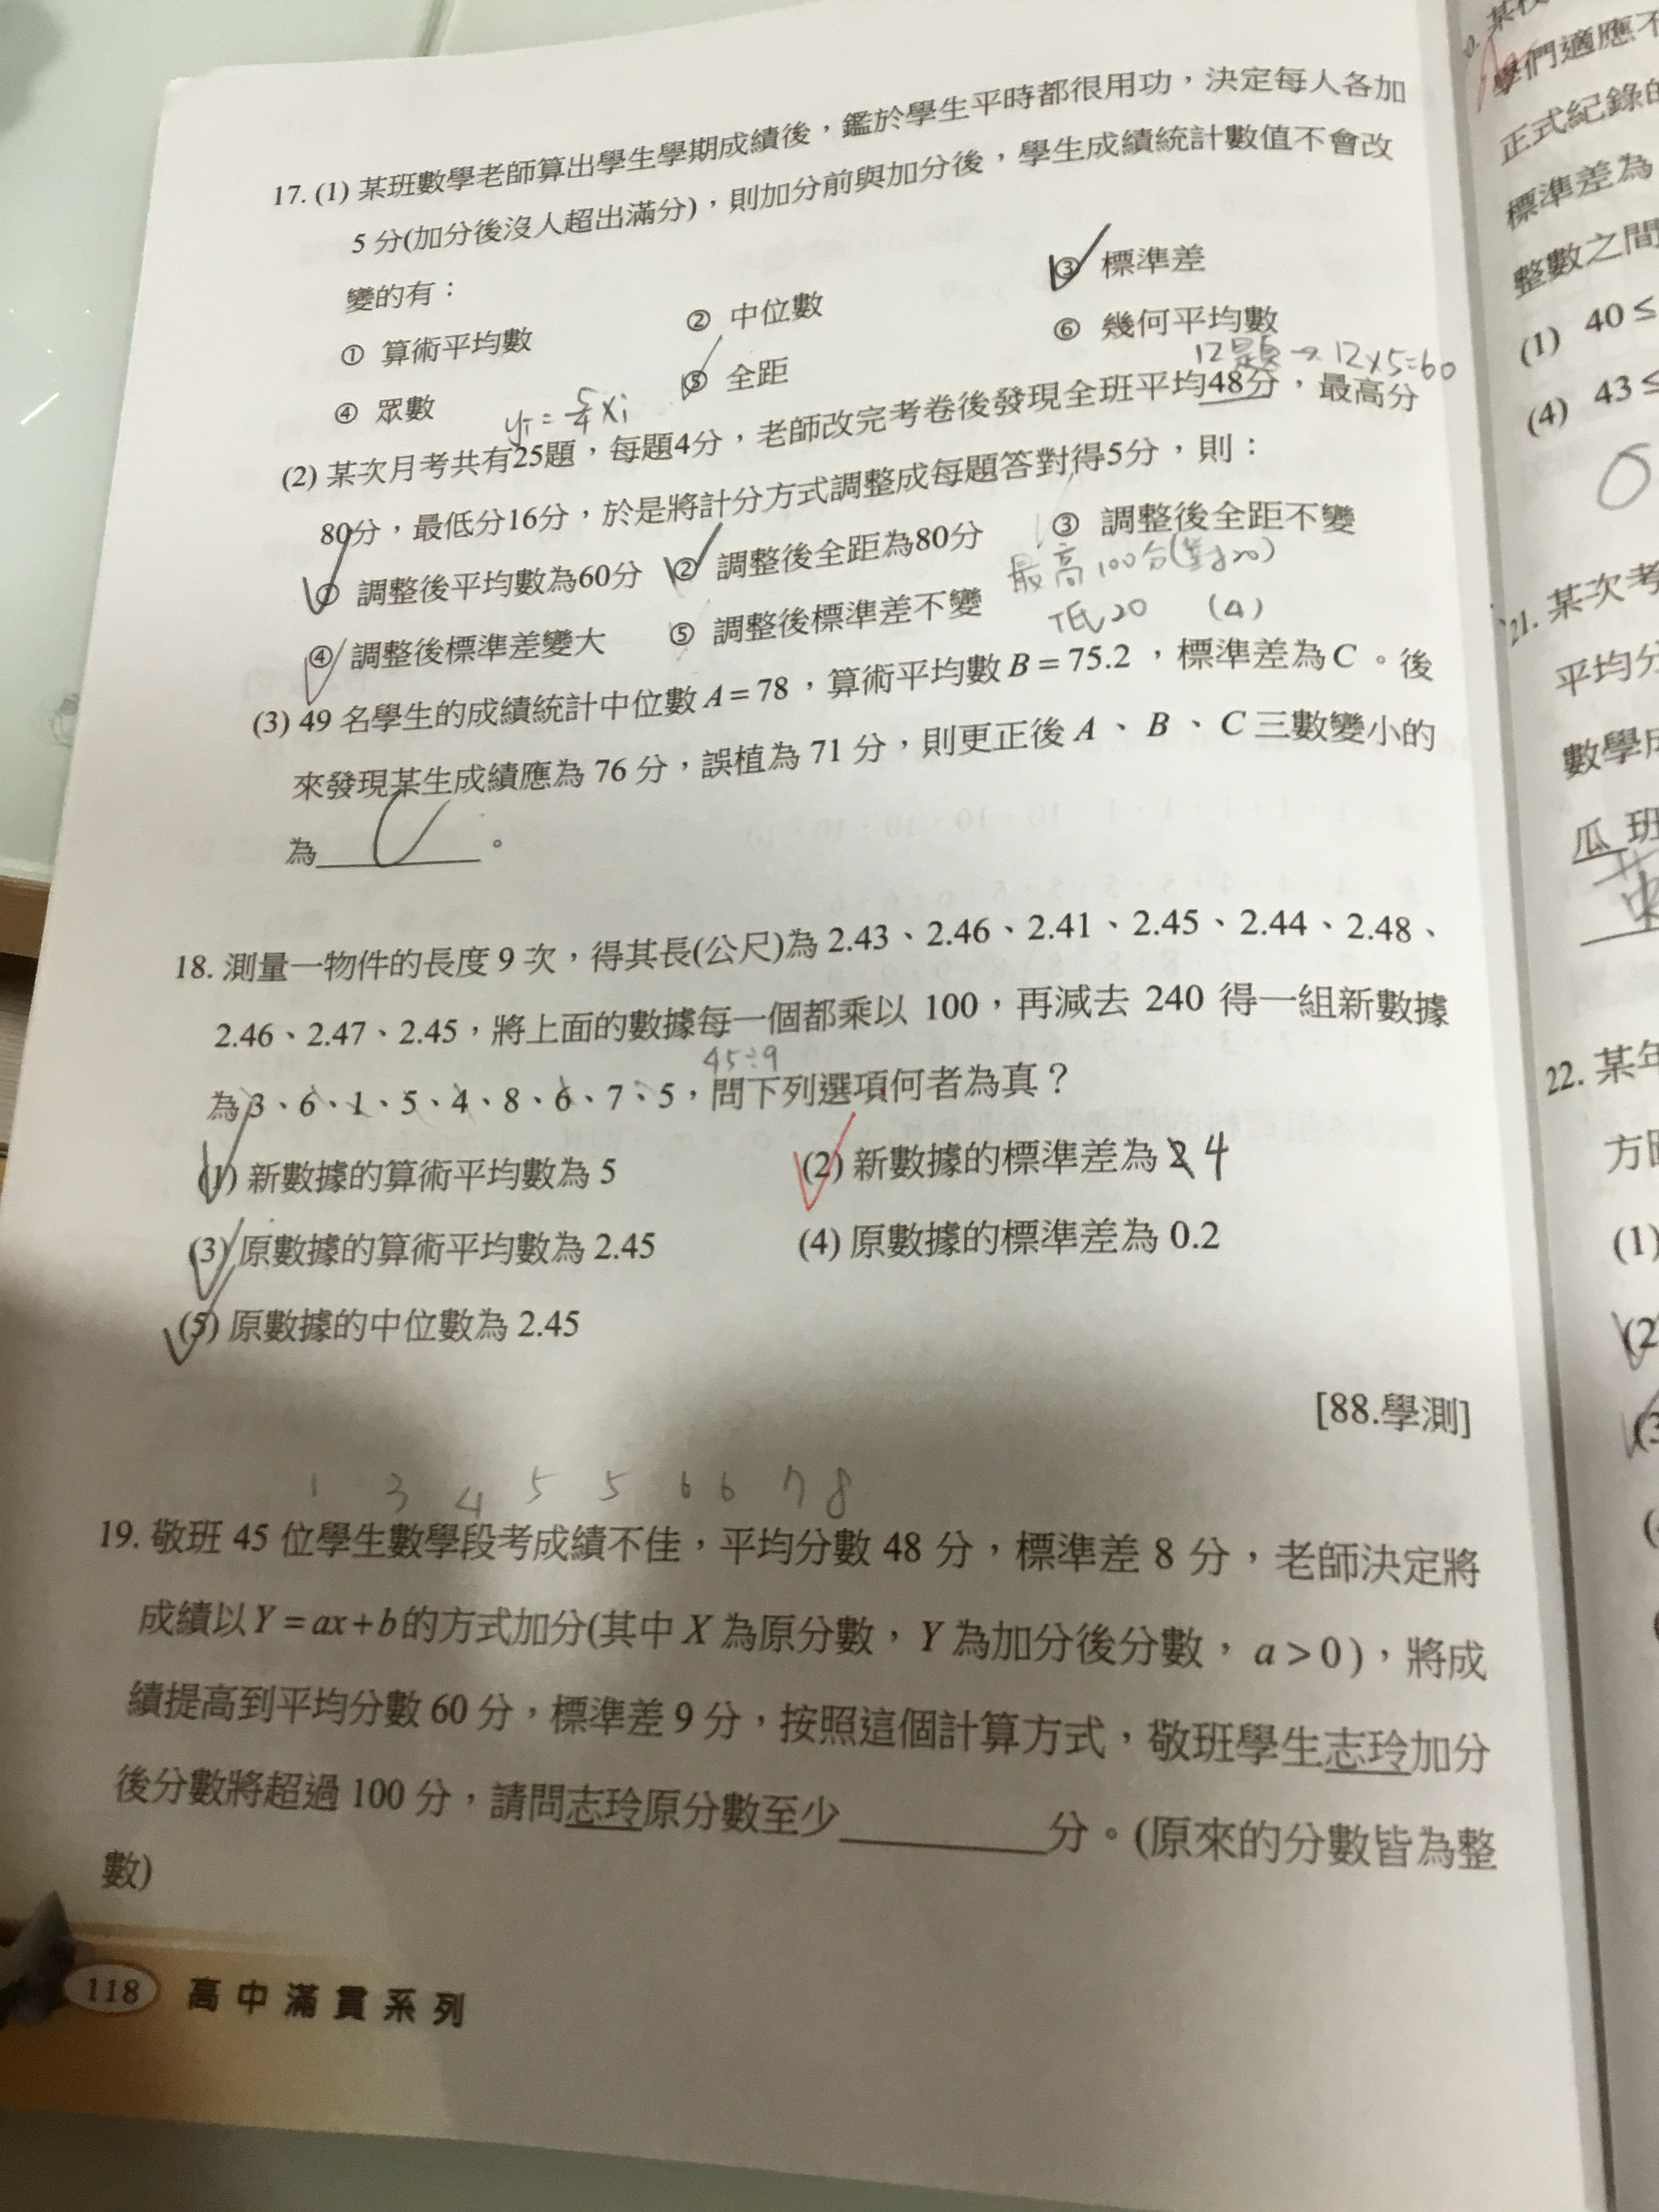 17. (1) 某班數學老師算出學生學期成績後，鑑於學生平時都很用功，決定每人各加
5 分(加分後沒人超出滿分)，則加分前與加分後，學生成績統計數值不會改
變的有：
① 算術平均數 ② 中位數 ③ 標準差
④ 眾數 ⑤ 全距 ⑥ 幾何平均數
12題→12×5=60
yi = 5/4 xi
(2) 某次月考共有25題，每題4分，老師改完考卷後發現全班平均48分，最高分
80分，最低分16分，於是將計分方式調整成每題答對得5分，則：
① 調整後平均數為60分 ② 調整後全距為80分 ③ 調整後全距不變
最高100分(對20)
④ 調整後標準差變大 ⑤ 調整後標準差不變
低20 (4)
(3) 49 名學生的成績統計中位數 A = 78，算術平均數 B = 75.2，標準差為 C。後
來發現某生成績應為 76 分，誤植為 71 分，則更正後 A、B、C 三數變小的
為 C 。
18. 測量一物件的長度 9 次，得其長(公尺)為 2.43、2.46、2.41、2.45、2.44、2.48、
2.46、2.47、2.45，將上面的數據每一個都乘以 100，再減去 240 得一組新數據
45÷9
為 3、6、1、5、4、8、6、7、5，問下列選項何者為真？
(1) 新數據的算術平均數為 5 (2) 新數據的標準差為 2 4
(3) 原數據的算術平均數為 2.45 (4) 原數據的標準差為 0.2
(5) 原數據的中位數為 2.45
[88.學測]
1 3 4 5 5 6 6 7 8
19. 敬班 45 位學生數學段考成績不佳，平均分數 48 分，標準差 8 分，老師決定將
成績以 Y = ax + b 的方式加分(其中 X 為原分數，Y 為加分後分數，a > 0)，將成
績提高到平均分數 60 分，標準差 9 分，按照這個計算方式，敬班學生志玲加分
後分數將超過 100 分，請問志玲原分數至少 分。(原來的分數皆為整
數)
118 高中滿貫系列
學們適應不
正式紀錄的
標準差為
整數之間
(1) 40 ≤
(4) 43 ≤
21. 某次考
平均分
數學成
瓜 班
22. 某年
(1)
(2
(3